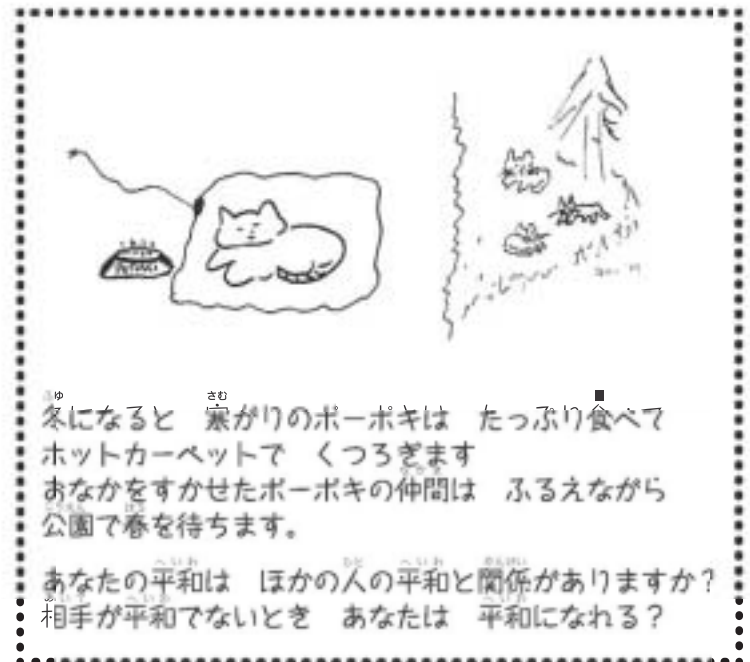 冬になると　寒がりのポーポキは　たっぷり食べて
ホットカーペットで　くつろぎます
おなかをすかせたポーポキの仲間は　ふるえながら
公園で春を待ちます。
あなたの平和は　ほかの人の平和と関係がありますか?
相手が平和でないとき　あなたは　平和になれる?